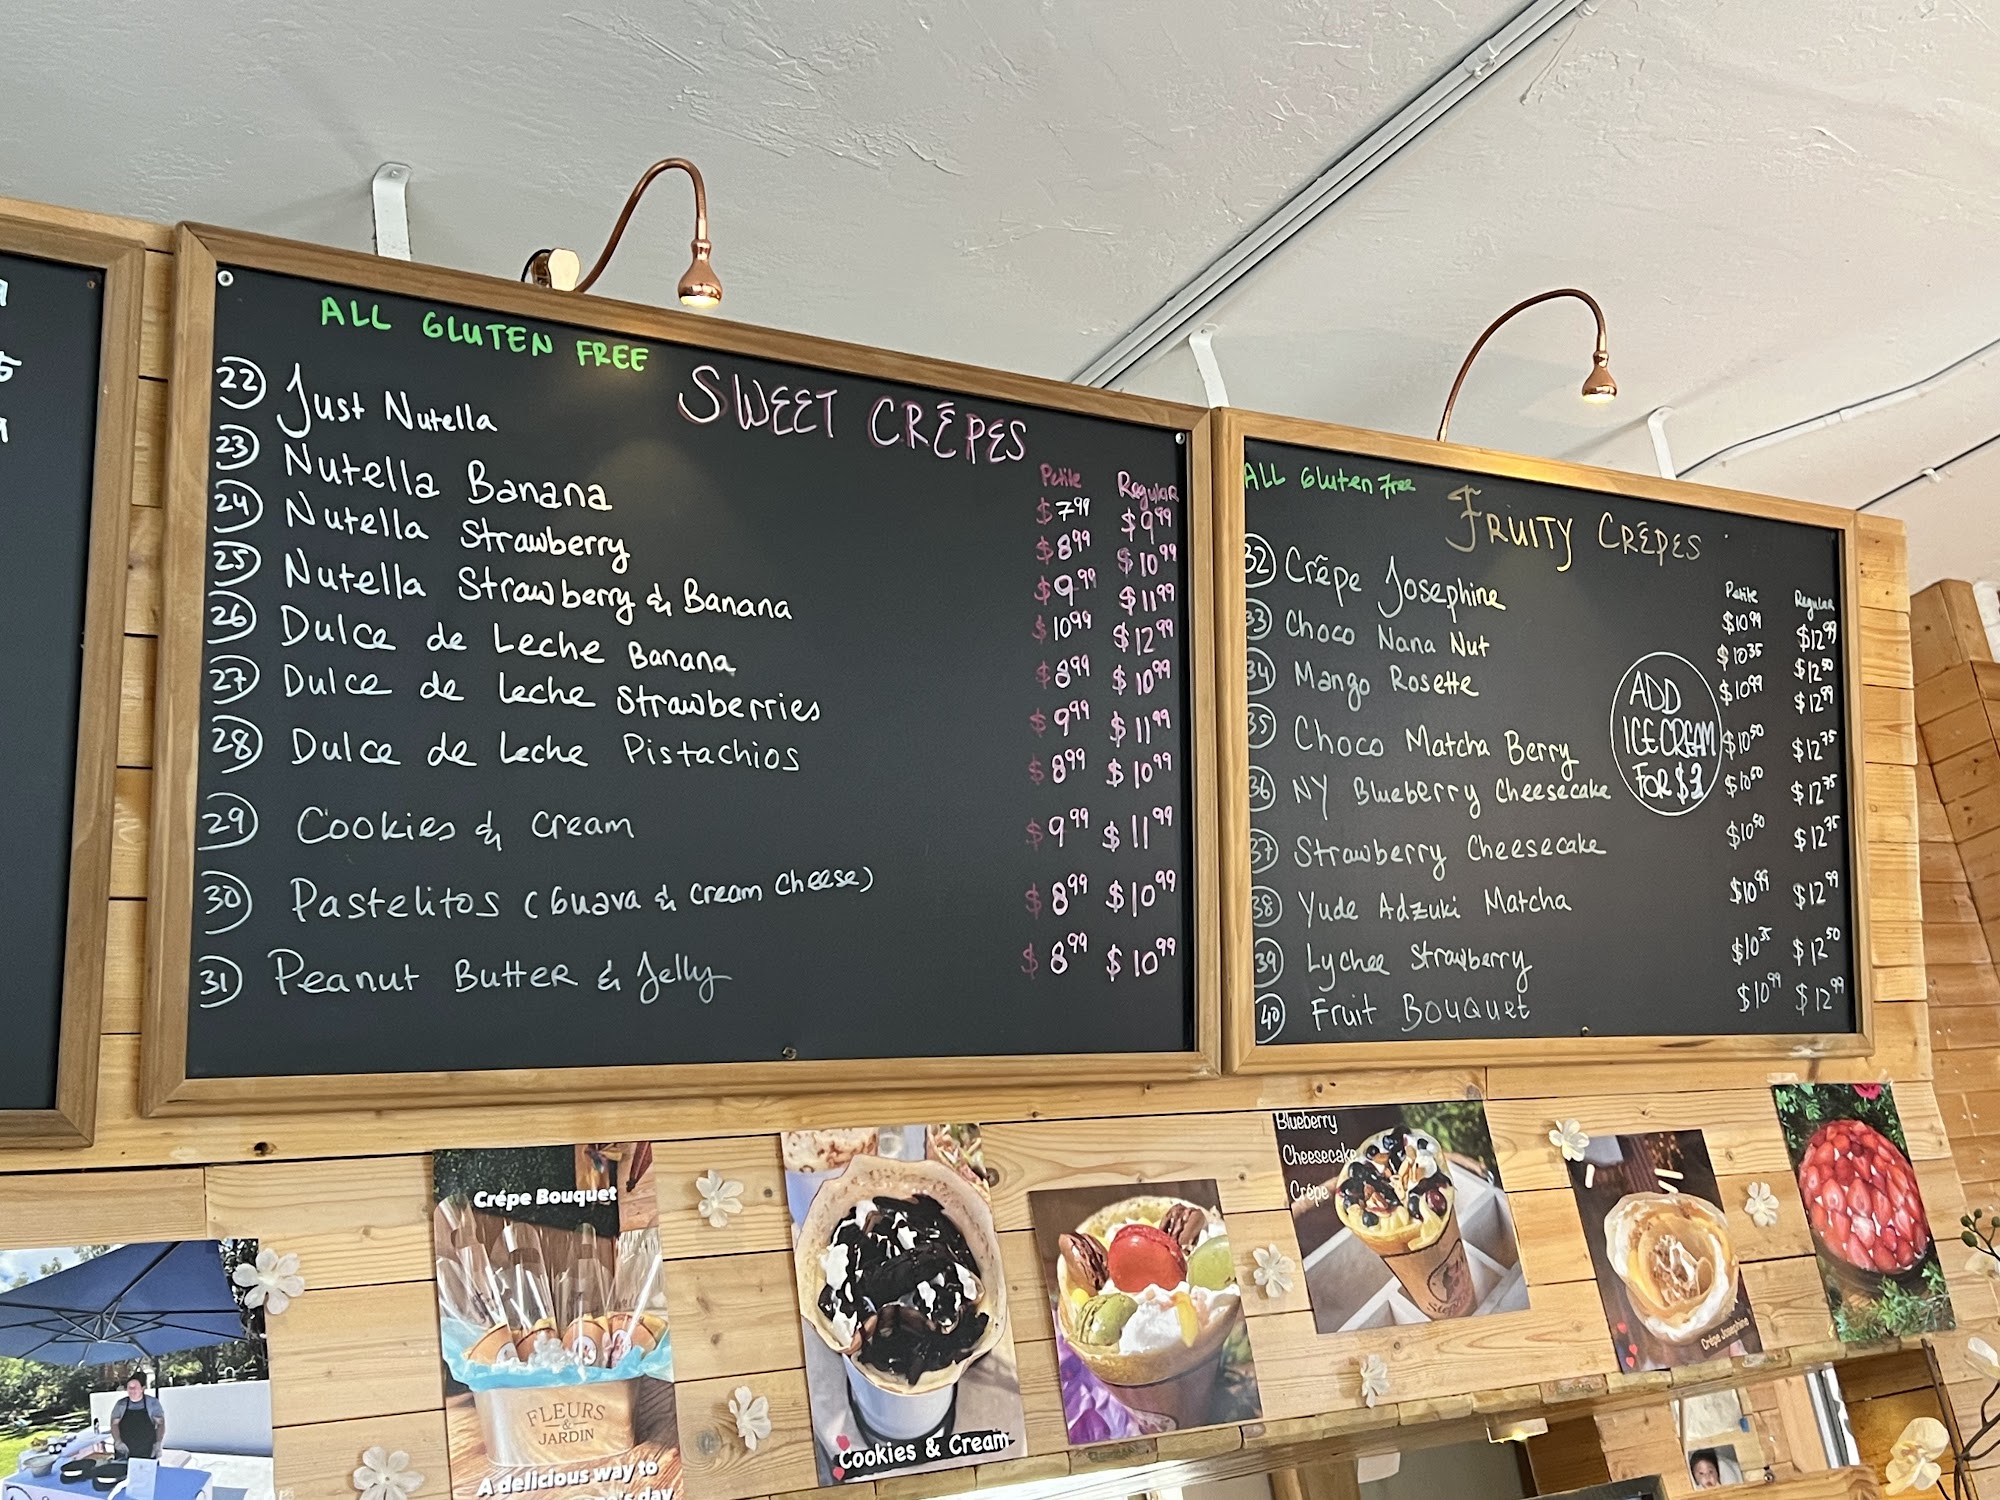 ALL GLUTEN FREE
SWEET CRÊPES
Petite Regular
22 Just Nutella $7.99 $9.99
23 Nutella Banana $8.99 $10.99
24 Nutella Strawberry $9.99 $11.99
25 Nutella Strawberry & Banana $10.99 $12.99
26 Dulce de Leche Banana $8.99 $10.99
27 Dulce de Leche Strawberries $9.99 $11.99
28 Dulce de Leche Pistachios $8.99 $10.99
29 Cookies & Cream $9.99 $11.99
30 Pastelitos (Guava & Cream Cheese) $8.99 $10.99
31 Peanut Butter & Jelly $8.99 $10.99
ALL Gluten Free
FRUITY CRÊPES
Petite Regular
32 Crêpe Josephine $10.99 $12.99
33 Choco Nana Nut $10.35 $12.50
34 Mango Rosette $10.99 $12.99
35 Choco Matcha Berry $10.50 $12.75
36 NY Blueberry Cheesecake $10.50 $12.75
37 Strawberry Cheesecake $10.50 $12.75
38 Yude Adzuki Matcha $10.99 $12.99
39 Lychee Strawberry $10.35 $12.50
40 Fruit Bouquet $10.99 $12.99
ADD
ICE CREAM
FOR $1
Crépe Bouquet
FLEURS
&
JARDIN
A delicious way to
day
Cookies & Cream
Blueberry
Cheesecake
Crépe
Crêpe Josephine